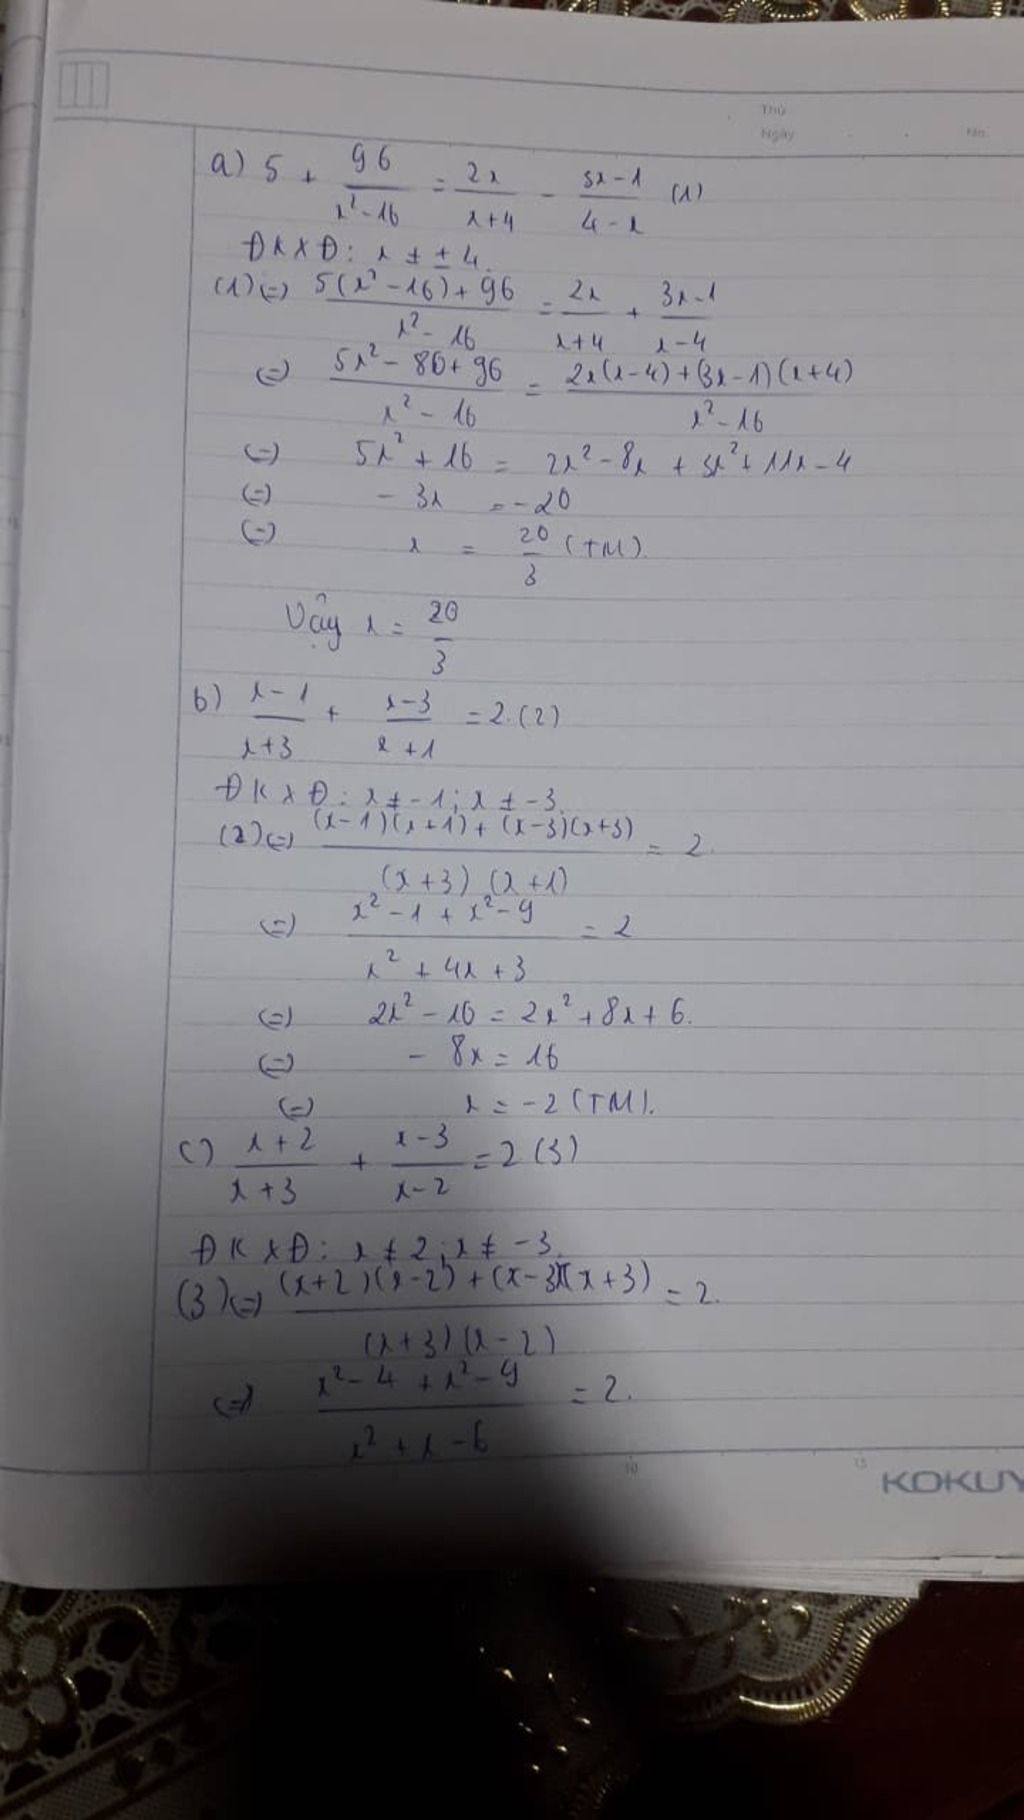 Thứ
Ngày . . No.
a) 5 + 96/(x²-16) = 2x/(x+4) - (3x-1)/(4-x) (1)
ĐKXĐ: x ≠ ±4.
(1) (=) (5(x²-16)+96)/(x²-16) = 2x/(x+4) + (3x-1)/(x-4)
(=) (5x²-80+96)/(x²-16) = (2x(x-4)+(3x-1)(x+4))/(x²-16)
(=) 5x²+16 = 2x²-8x + 3x²+11x-4
(=) -3x = -20
(=) x = 20/3 (TM).
Vậy x = 20/3
b) (x-1)/(x+3) + (x-3)/(x+1) = 2. (2)
ĐKXĐ: x ≠ -1; x ≠ -3.
(2) (=) ((x-1)(x+1)+(x-3)(x+3))/((x+3)(x+1)) = 2.
(=) (x²-1+x²-9)/(x²+4x+3) = 2
(=) 2x²-10 = 2x²+8x+6.
(=) -8x = 16
(=) x = -2 (TM).
c) (x+2)/(x+3) + (x-3)/(x-2) = 2 (3)
ĐKXĐ: x ≠ 2; x ≠ -3.
(3) (=) ((x+2)(x-2)+(x-3)(x+3))/((x+3)(x-2)) = 2.
(=) (x²-4+x²-9)/(x²+x-6) = 2.
10 15
KOKUY